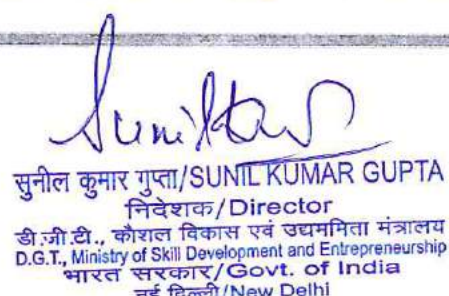 सुनील कुमार गुप्ता/SUNIL KUMAR GUPTA
निदेशक/Director
डी.जी.टी., कौशल विकास एवं उद्यममिता मंत्रालय
D.G.T., Ministry of Skill Development and Entrepreneurship
भारत सरकार/Govt. of India
नई दिल्ली/New Delhi